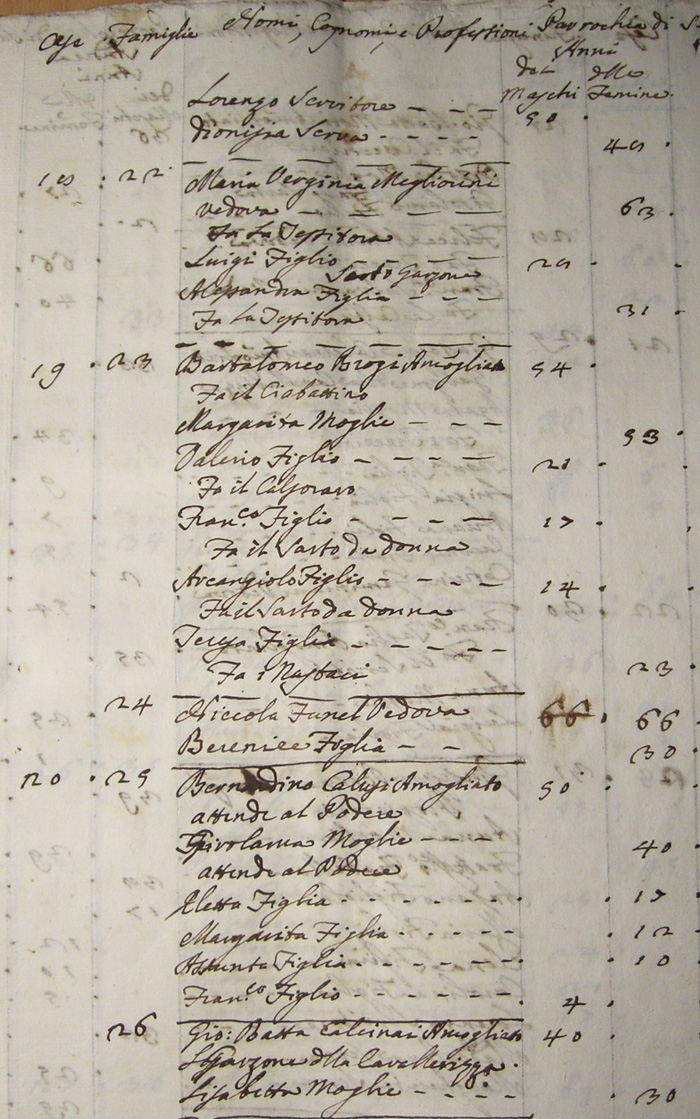 Case Famiglie Nomi, Cognomi, e Professioni Parrochia di S
Anni
dei delle
Maschi Femine
Lorenzo Servitore 50
Dionisia Serva 45
18 22 Maria Verginia Megliorini
vedova 63
Fa La Tessitora
Luigi Figlio Sarto Garzone 25
Alessandra Figlia 31
Fa La Tessitora
19 23 Bartolomeo Brogi Amogliato 54
Fa il Ciabattino
Margarita Moglie 53
Valerio Figlio 21
Fa il Calzoraro
Fran.co Figlio 17
Fa il Sarto da donna
Arcangiolo Figlio 14
Fa il Sarto da donna
Teresa Figlia
Fa i Nastari 23
24 Niccola Vedova 66 66
Berenice Figlia 30
20 25 Bernardino Calusi Amogliato 50
attende al Podere
Girolama Moglie 40
attende al Podere
Eletta Figlia 17
Margarita Figlia 12
Assunta Figlia 10
Fran.co Figlio 4
26 Gio: Batta Calcinai Amogliato 40
Garzone della Cavallerizza
Lisabetta Moglie 30